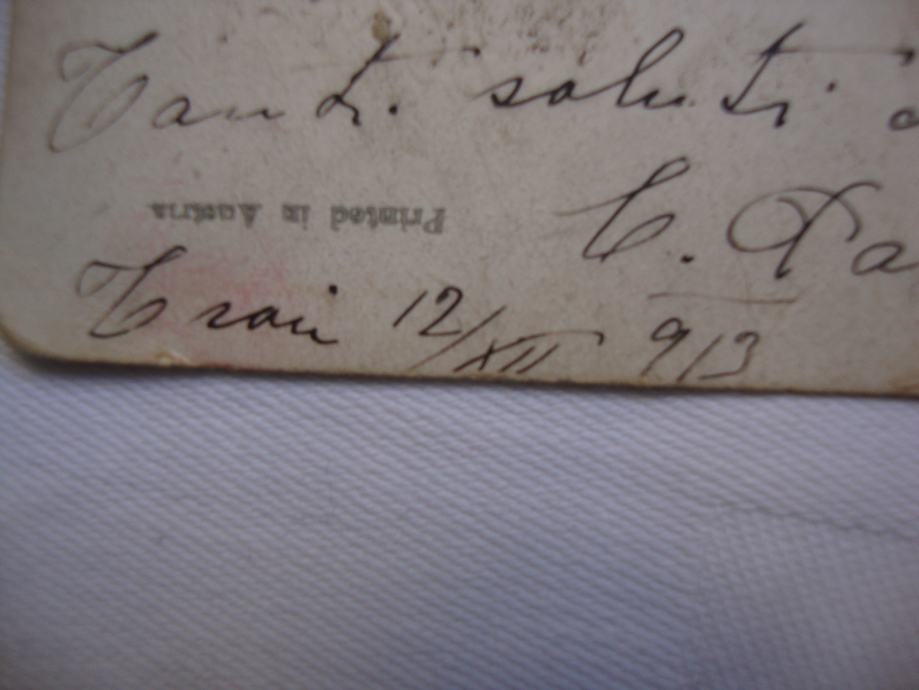 Tanti saluti
C. Pa
Printed in Austria
Trau 12/XII 913